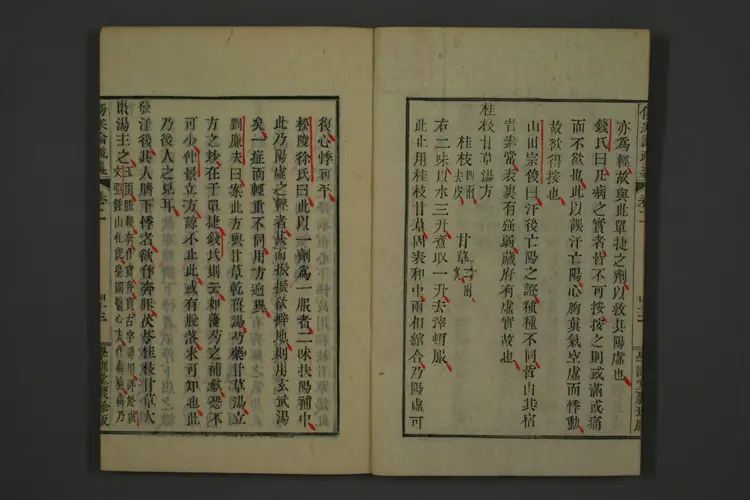 亦爲輕故與此單捷之劑以救其陽虛也
錢氏曰凡病之實者皆不可按按之則或滿或痛
而不欲也此以誤汗亡陽心胸眞氣空虛而悸動
故欲得按也
山田宗俊曰汗後亡陽之證種種不同皆由其宿
嘗素常表裏有强弱藏府有虛實故也
桂枝甘草湯方
桂枝四兩去皮 甘草二兩炙
右二味以水三升煮取一升去滓頓服
此止用桂枝甘草固表和中兩相綰合乃陽虛可
復心悸可平
松陵徐氏曰此以一劑爲一服者二味扶陽補中
此乃陽虛之輕者甚而振振欲擗地則用玄武湯
矣一症而輕重不同用方逈異
劉廉夫曰案此方與甘草乾薑湯芍藥甘草湯立
方之妙在于單捷錢氏則云如蔘芍之補歛恐不
可少仲景立方諒不止此或有脫落未可知也此
乃後人之見耳
發汗後其人臍下悸者欲作奔豚茯苓桂枝甘草大
棗湯主之
傷寒論疏義 卷二
四十三
學訓堂聚珍版